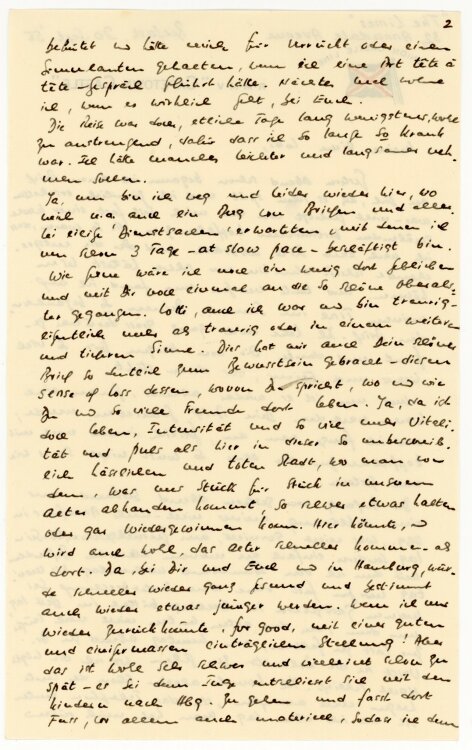 2
betrübt u hätte mich für verrückt oder einen
Simulanten gehalten, wenn ich eine Art tête à
tête-Gespräch geführt hätte. Nächstes Mal wohne
ich, wenn es wirklich geht, bei Euch.
Die Reise war doch, etliche Tage lang wenigstens, wohl
zu anstrengend, dafür dass ich so lange so krank
war. Ich hätte manches leichter und langsamer neh-
men sollen.
Ja, nun bin ich weg und leider wieder hier, wo
mich u.a. auch ein Berg von Briefen und aller-
lei eilige "Dienstsachen" erwarteten, mit denen ich
nun schon 3 Tage - at slow pace - beschäftigt bin.
Wie gerne wäre ich noch ein wenig dort geblieben
und mit Dir noch einmal an die so schöne Oberals-
ter gegangen. Lotti, auch ich war u bin traurig -
eigentlich mehr als traurig oder in einem weiteren
und tieferen Sinne. Dies hat mir auch Dein schöner
Brief so deutlich zum Bewusstsein gebracht - diesen
sense of loss dessen, wovon Du sprichst, wo u wie
Du u so viele Freunde dort leben. Ja, da ist
doch Leben, Intensität und so viel mehr Vitali-
tät und Puls als hier in dieser so unbeschreib-
lich hässlichen und toten Stadt, wo man von
dem, was uns Stück für Stück in unserem
Alter abhanden kommt, so schwer etwas halten
oder gar wiedergewinnen kann. Hier könnte, u
wird auch wohl, das Alter schneller kommen als
dort. Da, bei Dir und Euch u in Hamburg, wür-
de schneller wieder ganz gesund und bestimmt
auch wieder etwas jünger werden. Wenn ich nur
wieder zurück könnte, for good, mit einer guten
und einigermassen einträglichen Stellung! Aber
das ist wohl sehr schwer und vielleicht schon zu
spät - es sei denn Inge entschliesst sich mit den
Kindern nach Hbg. zu gehen und fasst dort
Fuss, vor allem auch materiell, sodass sie dann